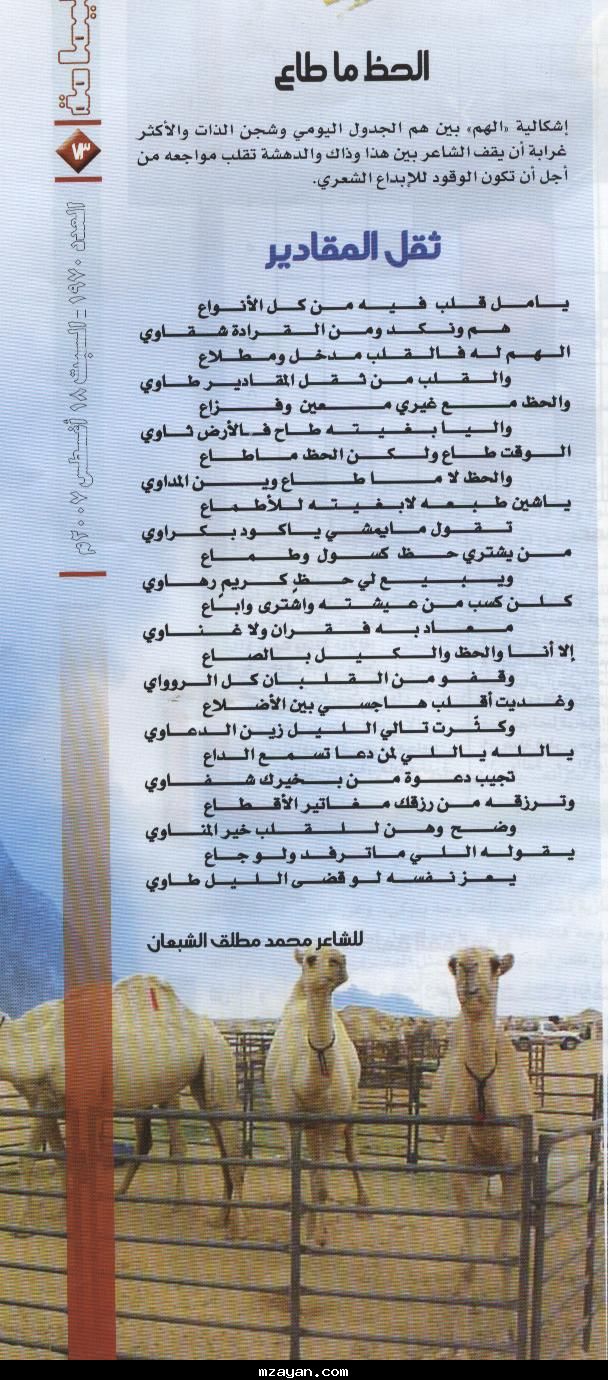 الحظ ما طاع
إشكالية «الهم» بين هم الجدول اليومي وشجن الذات والأكثر
غرابة أن يقف الشاعر بين هذا وذاك والدهشة تقلب مواجعه من
أجل أن تكون الوقود للإبداع الشعري.
ثقل المقادير
يامل قلب فيه من كل الأنواع
هم ونكد ومن القرادة شقاوي
الهم له فالقلب مدخل ومطلاع
والقلب من ثقل المقادير طاوي
والحظ مع غيري معين وفزاع
واليا بغيته طاح فالأرض ثاوي
الوقت طاع ولكن الحظ ماطاع
والحظ لا ما طاع وين المداوي
ياشين طبعه لابغيته للأطماع
تقول مايمشي ياكود بكراوي
من يشتري حظ كسول وطماع
ويبيع لي حظٍ كريمٍ رهاوي
كلن كسب من عيشته واشترى واباع
معاد به فقران ولا غناوي
إلا أنا والحظ والكيل بالصاع
وقفو من القلبان كل الروواي
وغديت أقلب هاجسي بين الأضلاع
وكثّرت تالي الليل زين الدعاوي
يالله ياللي لمن دعا تسمع الداع
تجيب دعوة من بخيرك شفاوي
وترزقه من رزقك مغاتير الأقطاع
وضح وهن للقلب خير المناوي
يقوله اللي ماترفد ولو جاع
يعز نفسه لو قضى الليل طاوي
للشاعر محمد مطلق الشبعان
٧٣
العدد ١٩٧٠ - السبت ١٨ أغسطس ٢٠٠٧م
mzayan.com